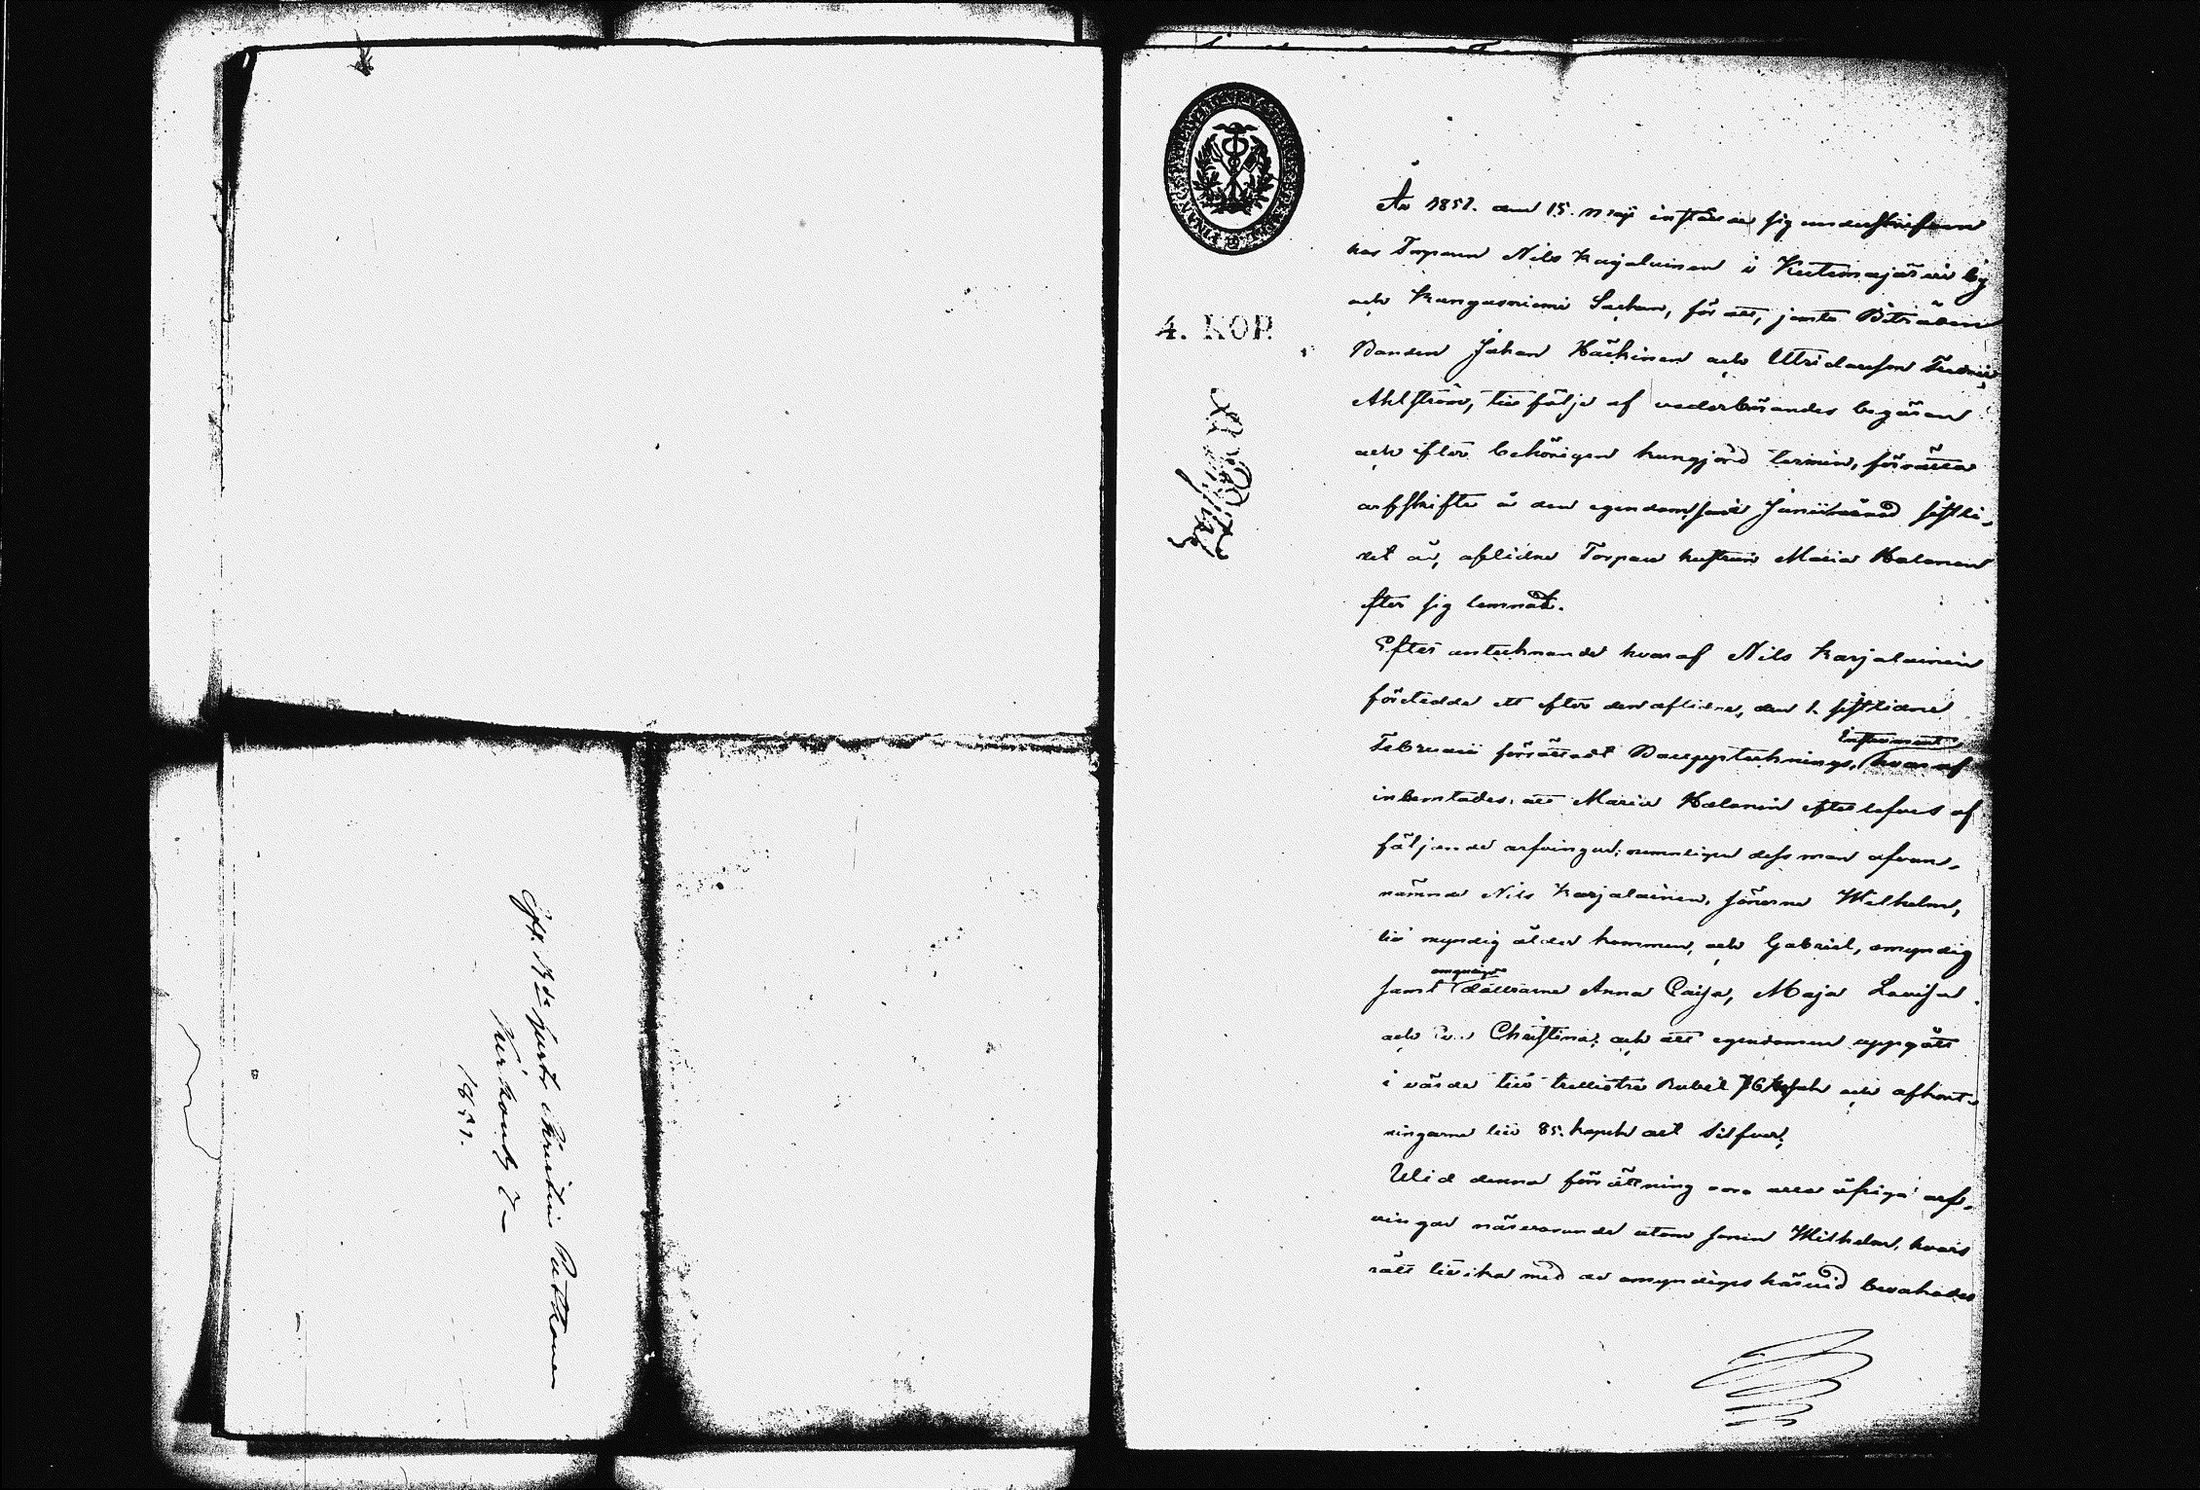 Bft. Bde hustr. Christin Putkonen
1851.
4. KOP.
År 1851. den 15. Maji instälde sig undertecknad
hos Torparen Nils Karjalainen i Kutemajärvi by
och Kangasniemi Sochen, för att, jemte Biträden
Bonden Johan Häckinen och Utridaresson Fredric
Ahlström, till följe af vederbörandes begäran
och efter behörigen kungjord termin, förrätta
arfskifte å den egendom, som Junii månad sistli-
det år, aflidne Torpare hustrun Maria Halonen
efter sig lemnat.
Efter antecknande hvaraf Nils Karjalainen
företedde ett efter den aflidne, den 1. sistlidne
Februarii förrättadt Bouppteknings, Instrument hvaraf
inhemtades: att Maria Halonen efterlefves af
följande arfvingar; nemligen dess man ofvan-
nämnde Nils Karjalainen, sönerne Wilhelm,
till myndig ålder kommen, och Gabriel, omyndig
samt omyndige döttrarne Anna Caisa, Maja Lovisa
och Christina; och att egendomen uppgått
i värde till Rubel 76 kopek och afkort-
ningarne till 85. kopek allt Silfver;
Wid denna förrättning voro alla öfriga arf-
vingar närvarande utom sonen Wilhelm, hvars
rätt lika med de omyndiges härvid bevakades